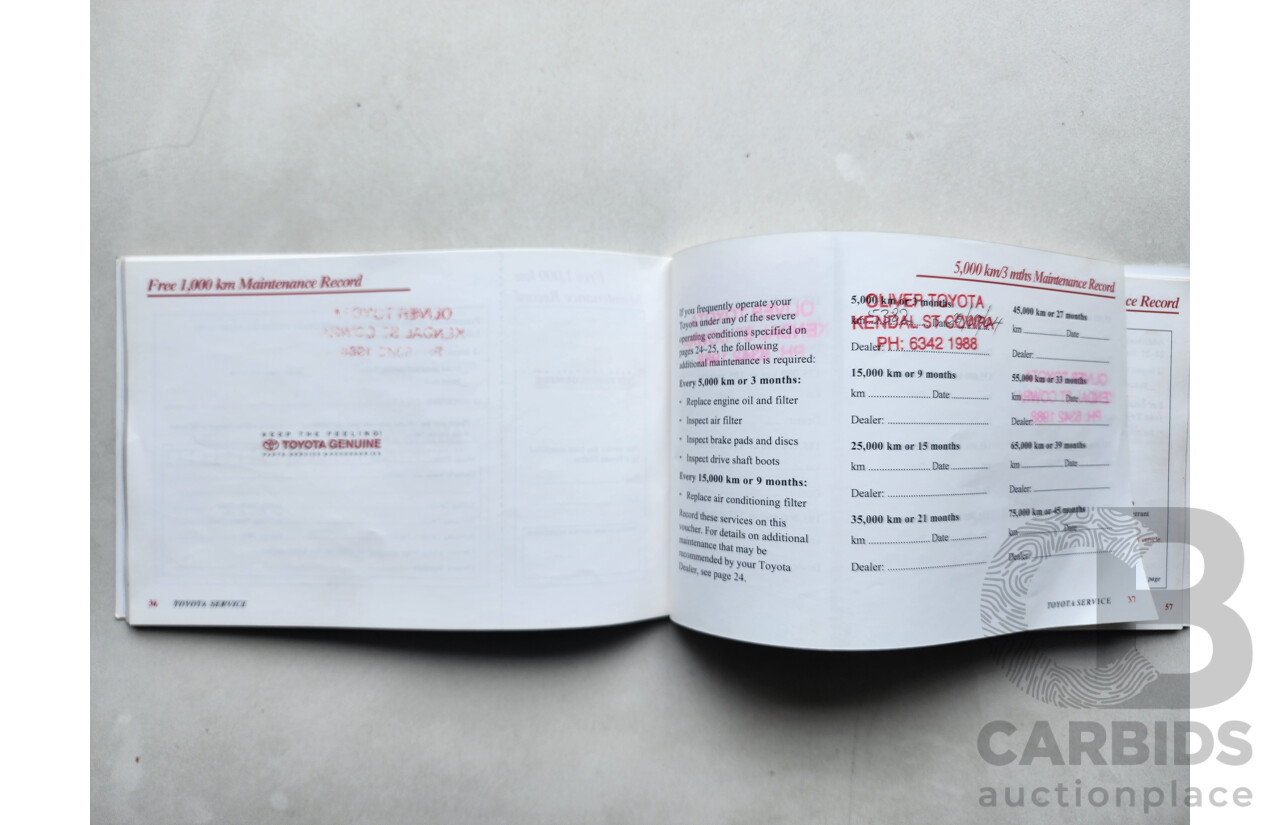 Free 1,000 km Maintenance Record
KEEP THE FEELING!
TOYOTA GENUINE
PARTS SERVICE ACCESSORIES
36 TOYOTA SERVICE
If you frequently operate your
Toyota under any of the severe
operating conditions specified on
pages 24–25, the following
additional maintenance is required:
Every 5,000 km or 3 months:
• Replace engine oil and filter
• Inspect air filter
• Inspect brake pads and discs
• Inspect drive shaft boots
Every 15,000 km or 9 months:
• Replace air conditioning filter
Record these services on this
voucher. For details on additional
maintenance that may be
recommended by your Toyota
Dealer, see page 24.
5,000 km/3 mths Maintenance Record
5,000 km or 3 months
km Date
Dealer:
OLIVER TOYOTA
KENDAL ST COWRA
PH: 6342 1988
15,000 km or 9 months
km Date
Dealer:
25,000 km or 15 months
km Date
Dealer:
35,000 km or 21 months
km Date
Dealer:
45,000 km or 27 months
km Date
Dealer:
55,000 km or 33 months
km Date
Dealer:
65,000 km or 39 months
km Date
Dealer:
75,000 km or 45 months
km Date
Dealer:
TOYOTA SERVICE 37
ce Record
page
57
CARBIDS
auctionplace